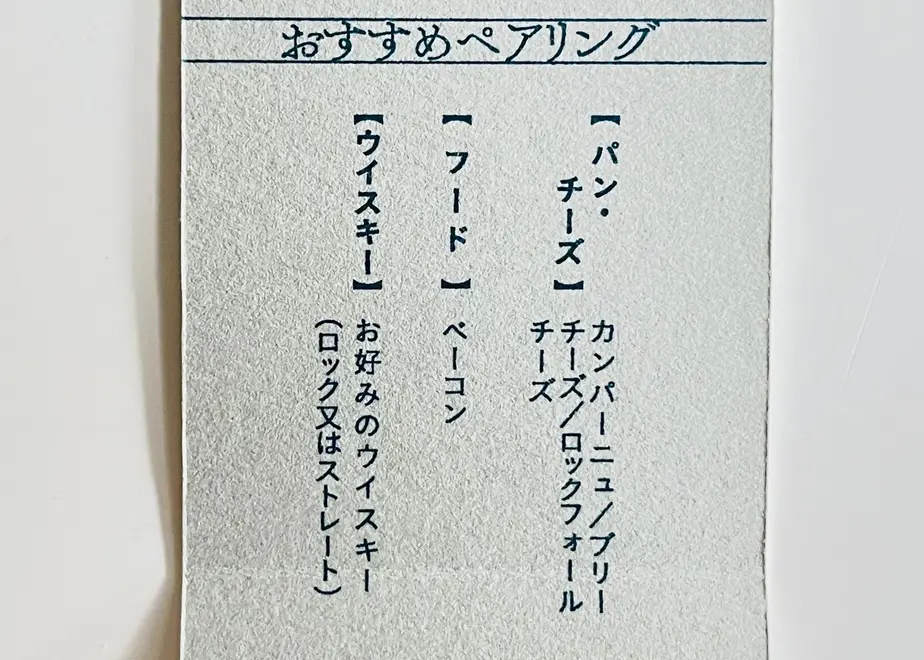 おすすめペアリング
【パン・
チーズ】
カンパーニュ/ブリー
チーズ/ロックフォール
チーズ
【フード】
ベーコン
【ウイスキー】
お好みのウイスキー
(ロック又はストレート)